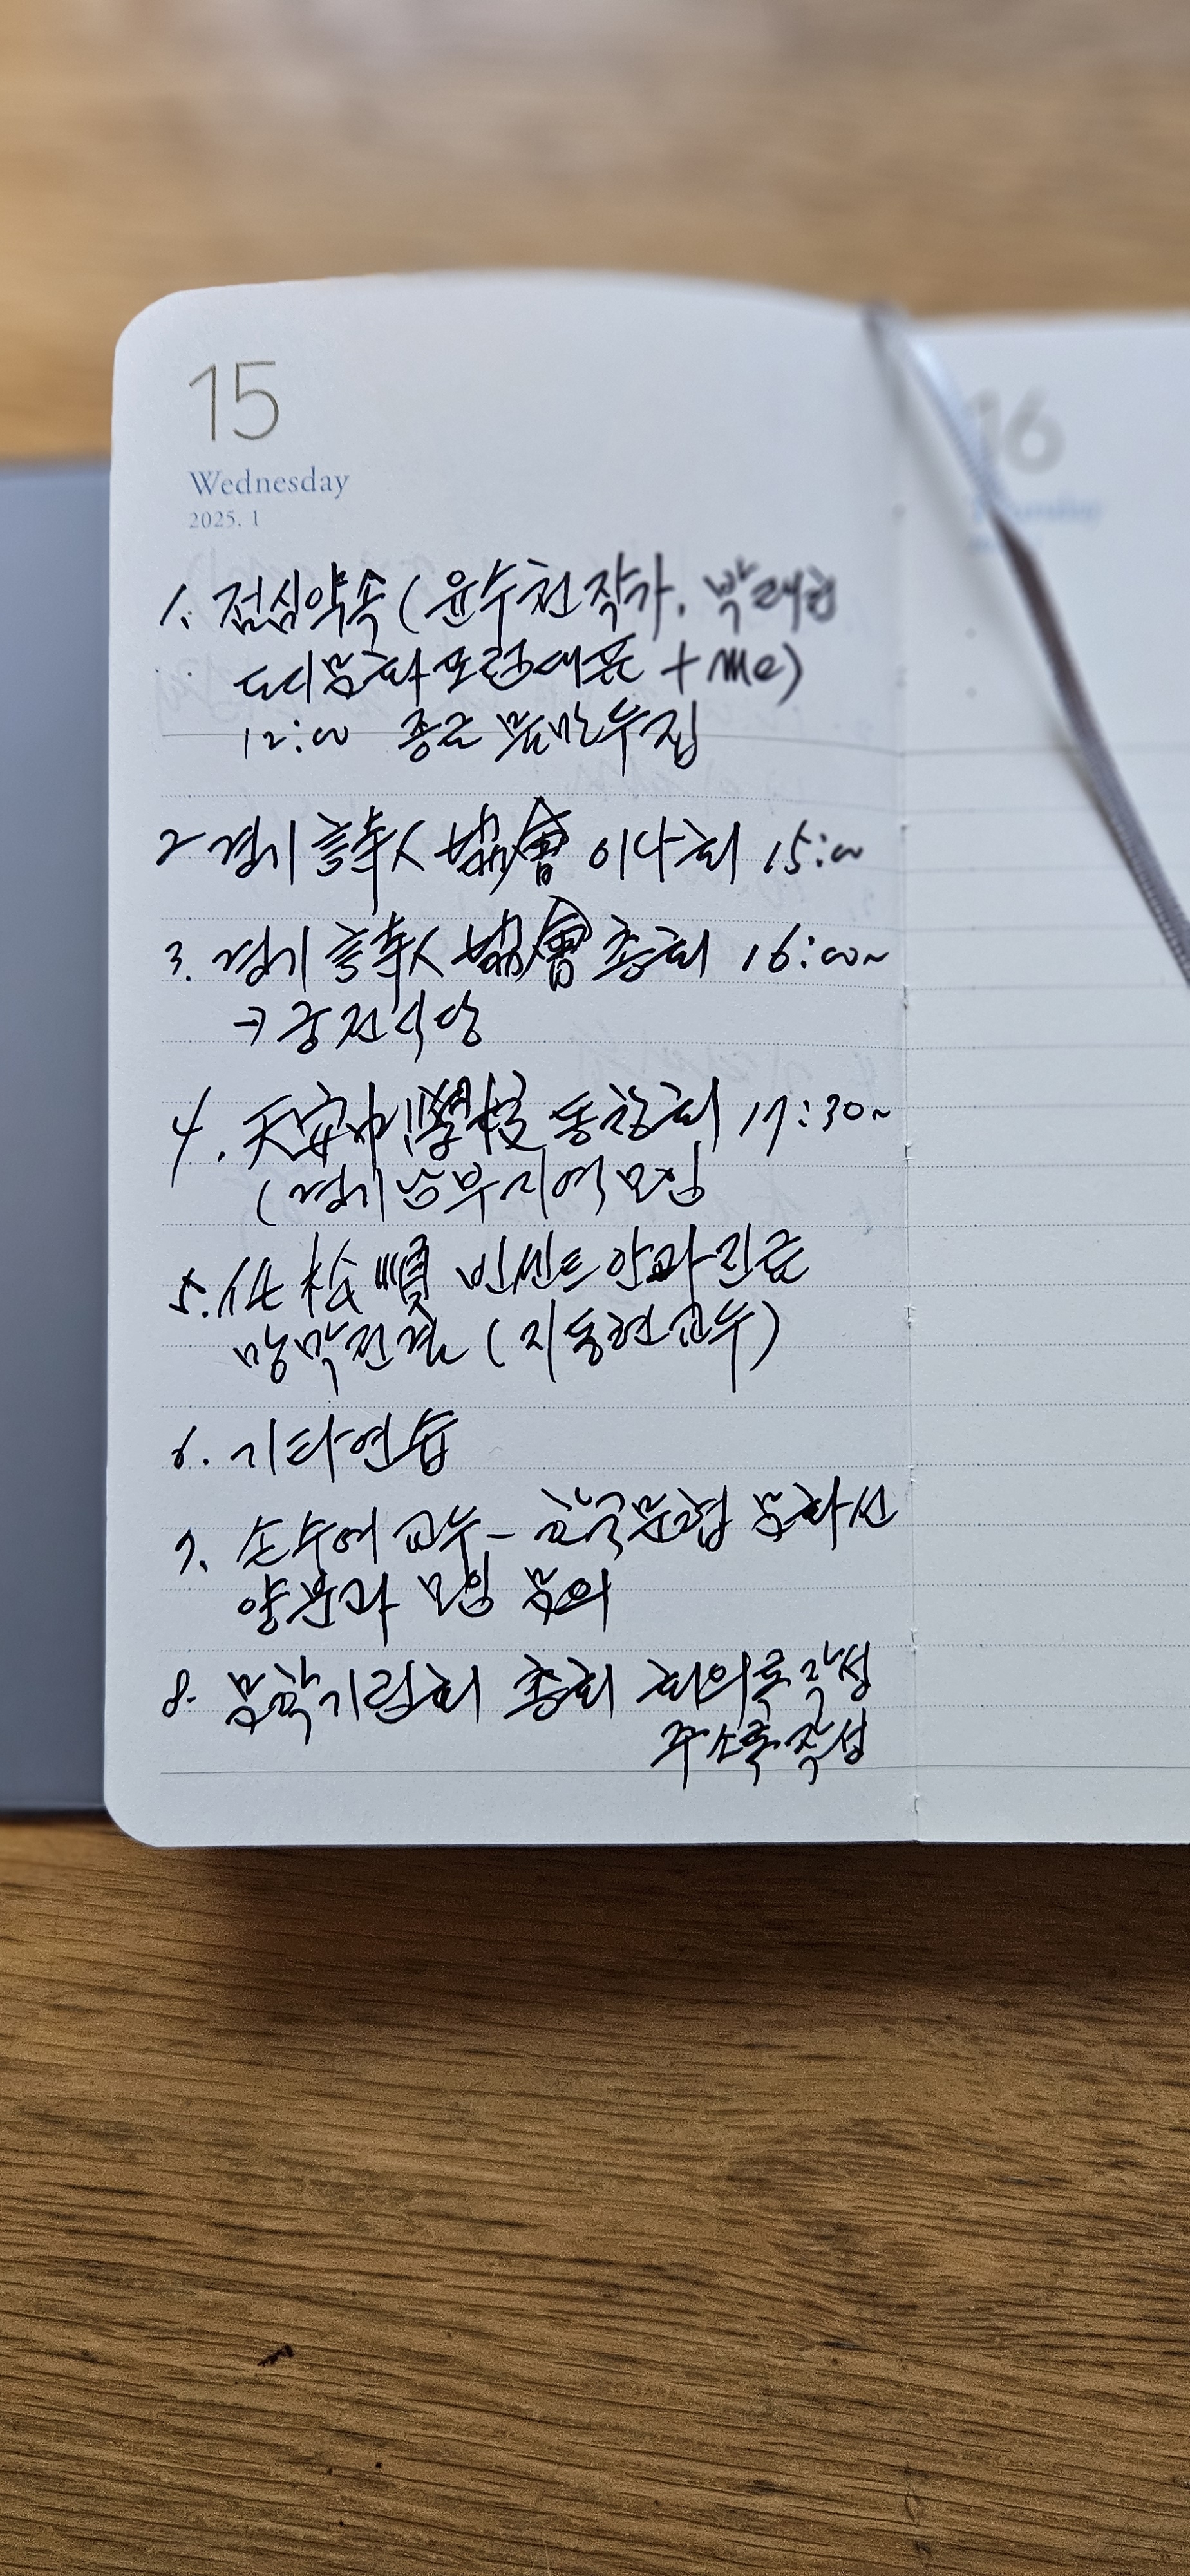 15
16
Wednesday
2025. 1
1. 점심약속 ( 윤수천 작가. 박래헌
문화포럼대표 + me)
12:00 종로 손만두집
2 경기 詩人 協會 이사회 15:00
3. 경기 詩人 協會 총회 16:00~
→ 궁전식당
4. 天安中學校 동창회 17:30~
( 경기남부지역 모임
5. 松順 빈센트 안과진료
망막전문 ( 지동현 교수 )
6. 기타연습
7. 손수여 교수 - 한국문협 문학선
양분과 모임 문의
8. 문학기림회 총회 회의록작성
주소록작성